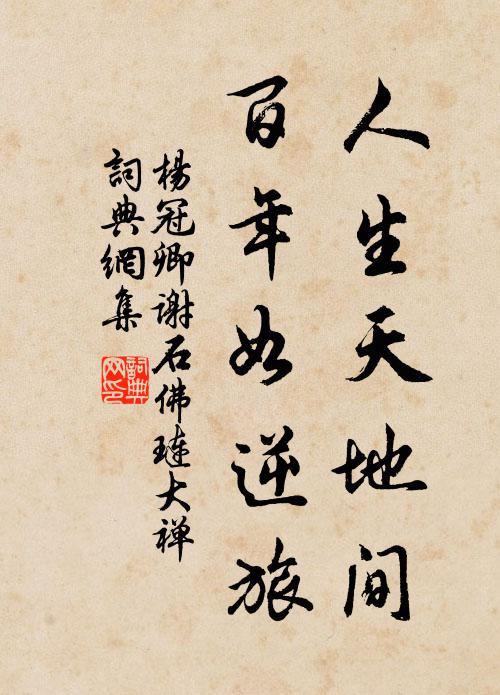 人生天地间
百年如逆旅
楊冠卿謝石佛璉大禅
詞典網集
詞典
网印